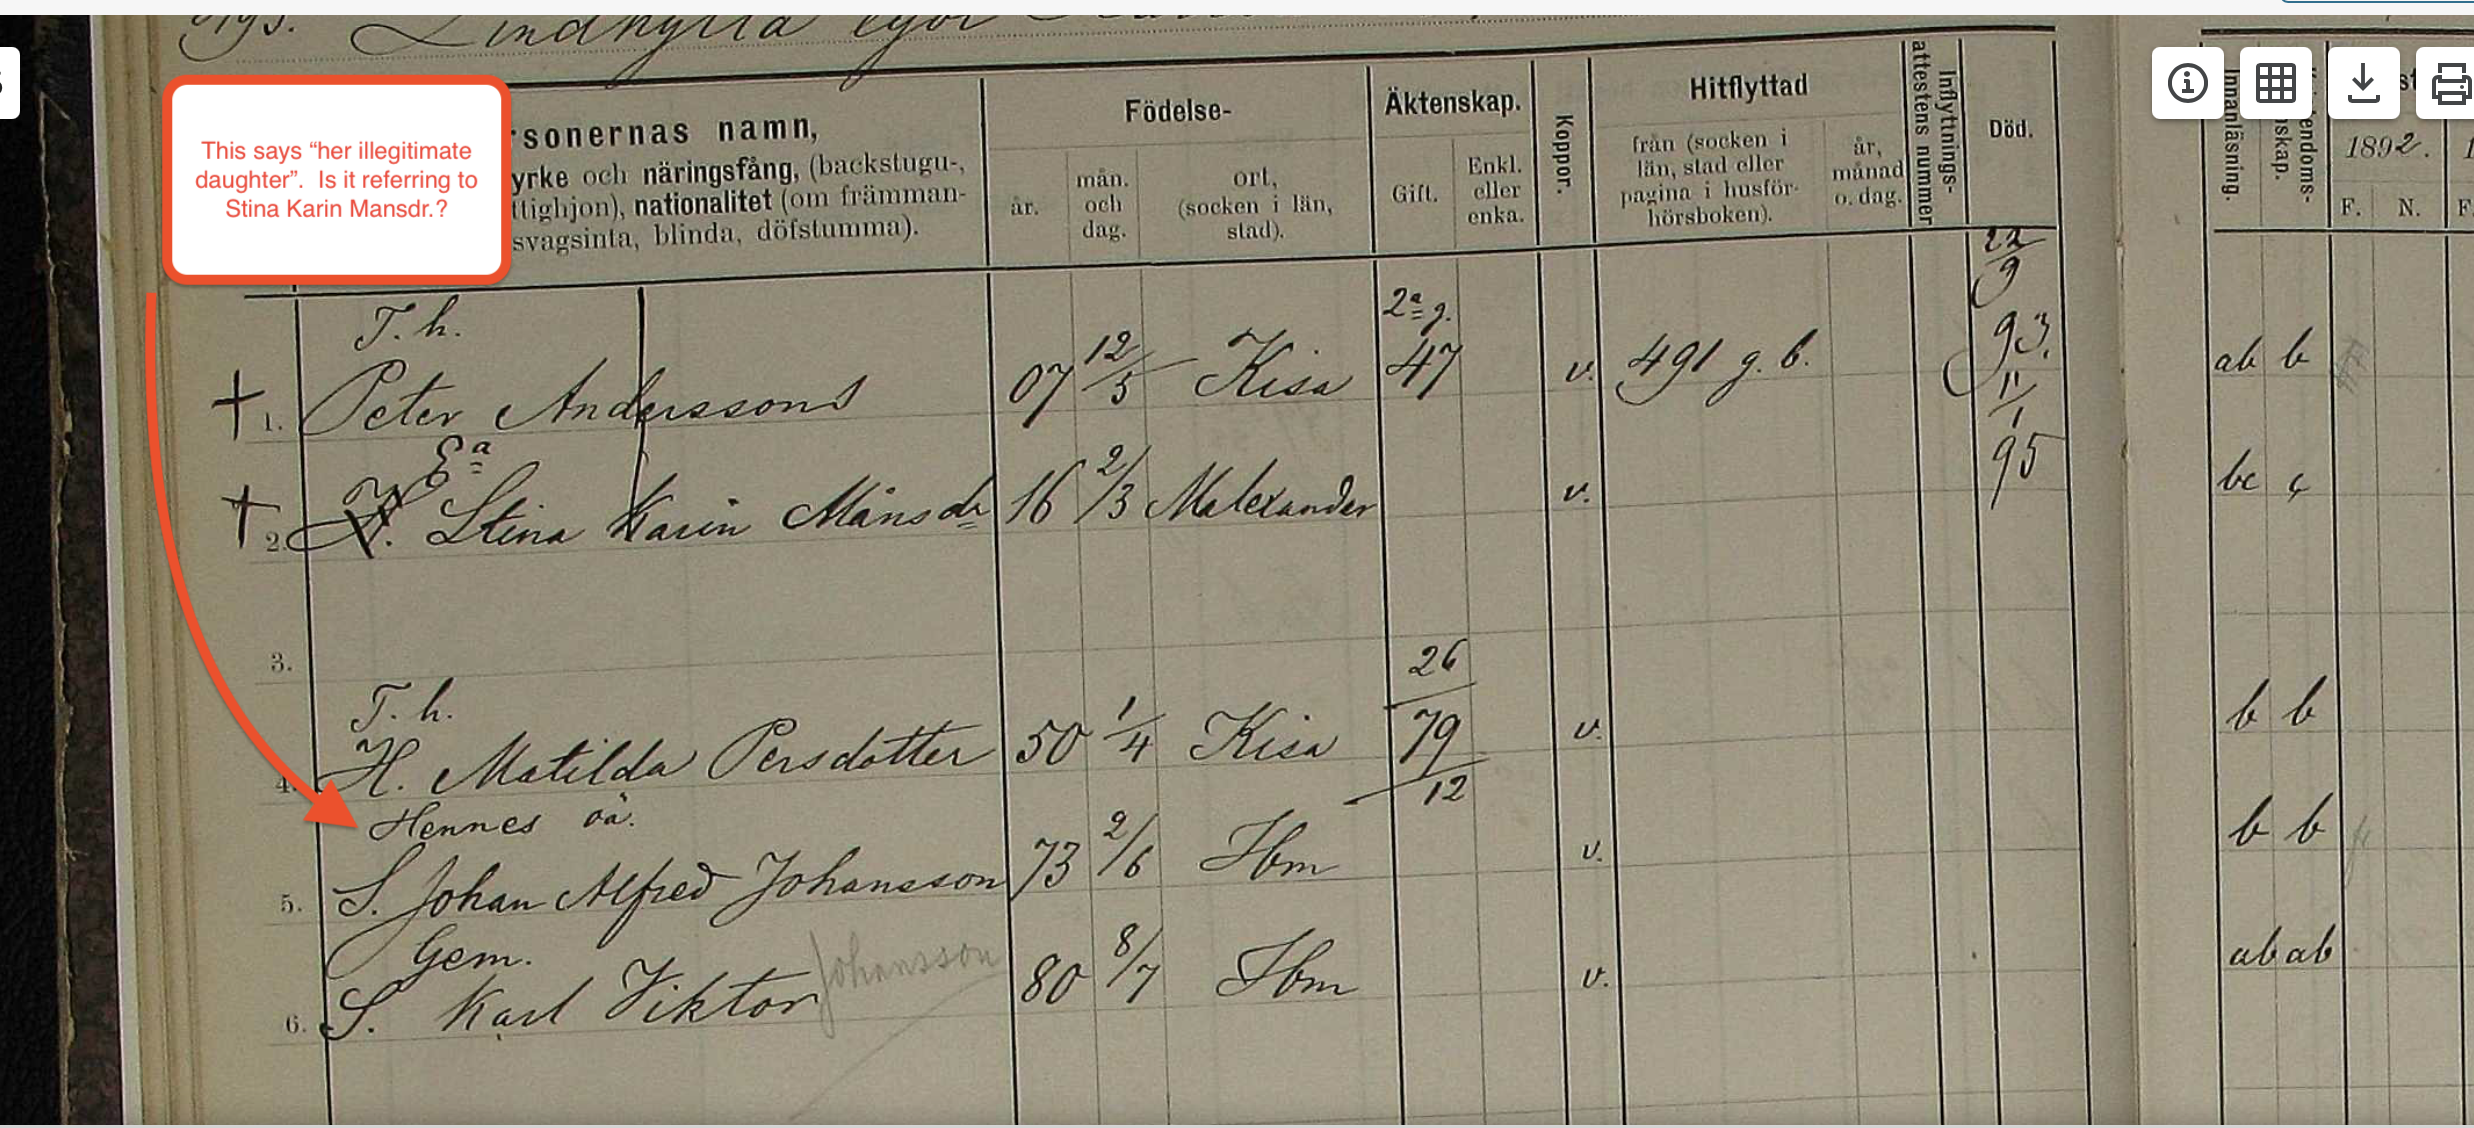 Lindhytta
This says “her illegitimate
daughter”. Is it referring to
Stina Karin Mansdr.?
rsonernas namn,
yrke och näringsfång, (backstugu-,
ttighjon), nationalitet (om främman-
svagsinta, blinda, döfstumma).
Födelse-
år.
mån.
och
dag.
ort,
(socken i län,
stad).
Äktenskap.
Gift.
Enkl.
eller
enka.
Koppor.
Hitflyttad
från (socken i
län, stad eller
pagina i husför-
hörsboken).
år,
månad
o. dag.
Inflyttnings-
attestens nummer
Död.
Innanläsning.
endoms-
skap.
1892.
F. N. F.
T. h. 2ª g. 22/9
1. Peter Anderssons 07 12/5 Kisa 47 v. 491 g. b. 93. ab b
Eª 11/1
2. H. Stina Karin Månsdr 16 2/3 Malexander v. 95 bc c
3.
T. h. 26
4. H. Matilda Persdotter 50 1/4 Kisa 79 v. b b
Hennes oä. 12
5. S. Johan Alfred Johansson 73 2/6 Hbm v. b b
Gem.
6. S. Karl Viktor Johansson 80 8/7 Hbm v. ab ab